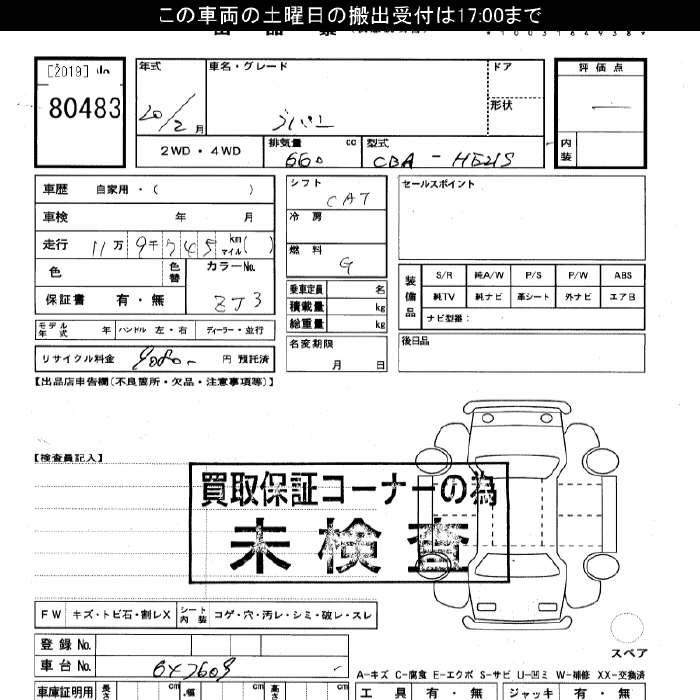 この車両の土曜日の搬出受付は17:00まで
[2019]
80483
年式
車名・グレード
ドア
評価点
20/2月
ラパン
形状
2WD・4WD
排気量 cc
660
型式
CBA - HE21S
内装
車歴 自家用・( )
シフト
CAT
セールスポイント
車検 年 月
冷房
走行 11万 9千 7 4 5 km マイル ( )
燃料
G
色
色替
カラーNo.
ZJ3
保証書 有・無
乗車定員 名
積載量 kg
総重量 kg
装備品
S/R 純A/W P/S P/W ABS
純TV 純ナビ 革シート 外ナビ エアB
ナビ型番:
モデル年式 年 ハンドル 左・右 ディーラー・並行
名変期限
月 日
後日品
リサイクル料金 円 預託済
【出品店申告欄(不良箇所・欠品・注意事項等)】
【検査員記入】
買取保証コーナーの為
未検査
FW キズ・トビ石・割レX シート内装 コゲ・穴・汚レ・シミ・破レ・スレ
登録 No.
スペア
車台 No.
A-キズ C-腐食 E-エクボ S-サビ U-凹ミ W-補修 XX-交換済
車庫証明用 長さ cm 幅 cm 高さ cm
工具 有・無 ジャッキ 有・無